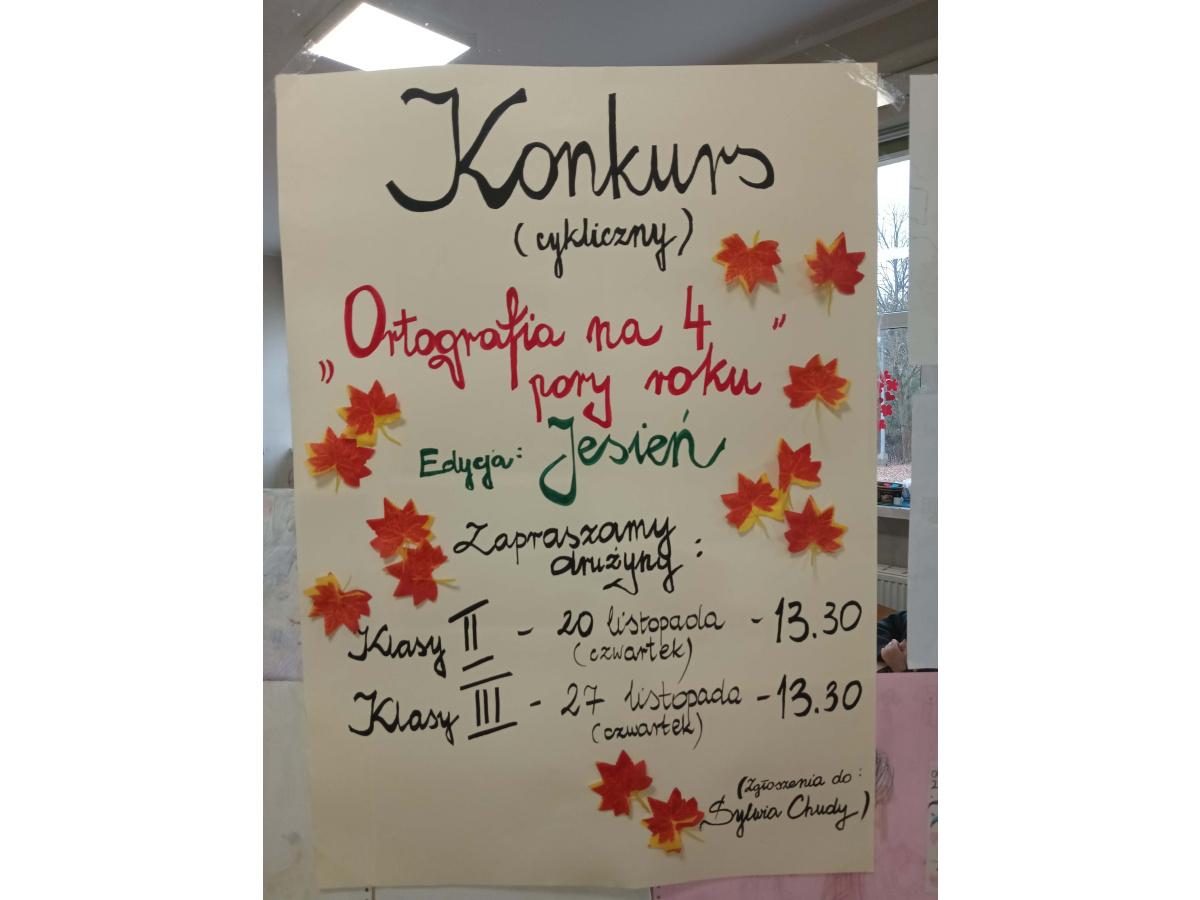 Konkurs
(cykliczny)
„Ortografia na 4
pory roku”
Edycja: Jesień
Zapraszamy
drużyny:
Klasy II - 20 listopada - 13.30
(czwartek)
Klasy III - 27 listopada - 13.30
(czwartek)
(Zgłoszenia do:
Sylwia Chudy)